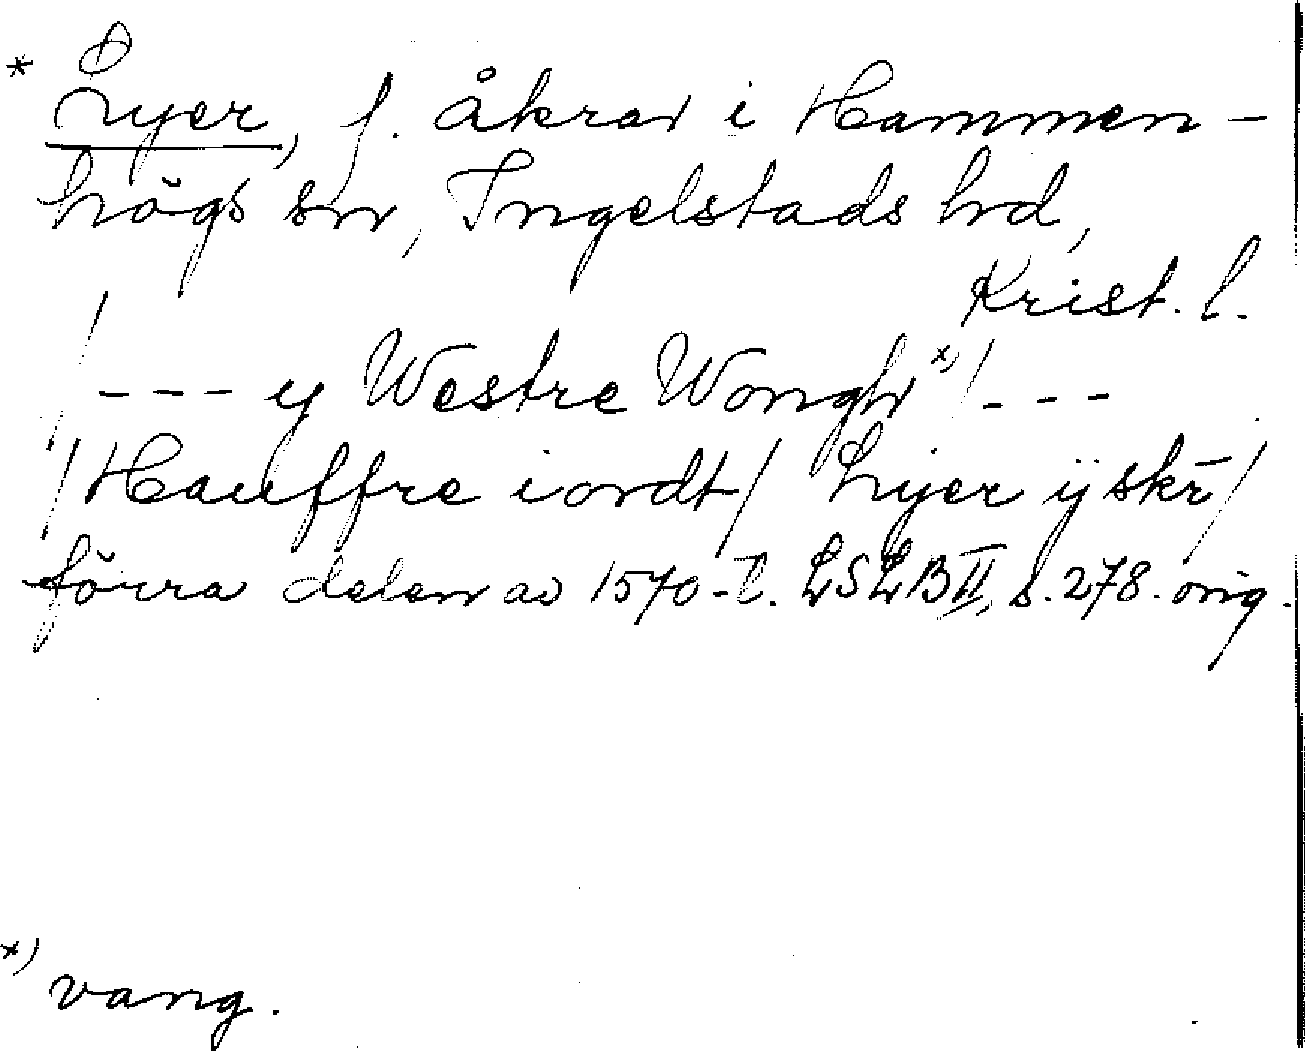 * Lyer, f. åkrar i Hammen-
högs sn, Ingelstads hd,
Krist. l.
/ --- y Westre Wongh x) / ---
/ Hauffre iordt / Lyer ÿ skr̄ /
förra delen av 1570-t. LSLB II, s. 278. orig.
x) vang.